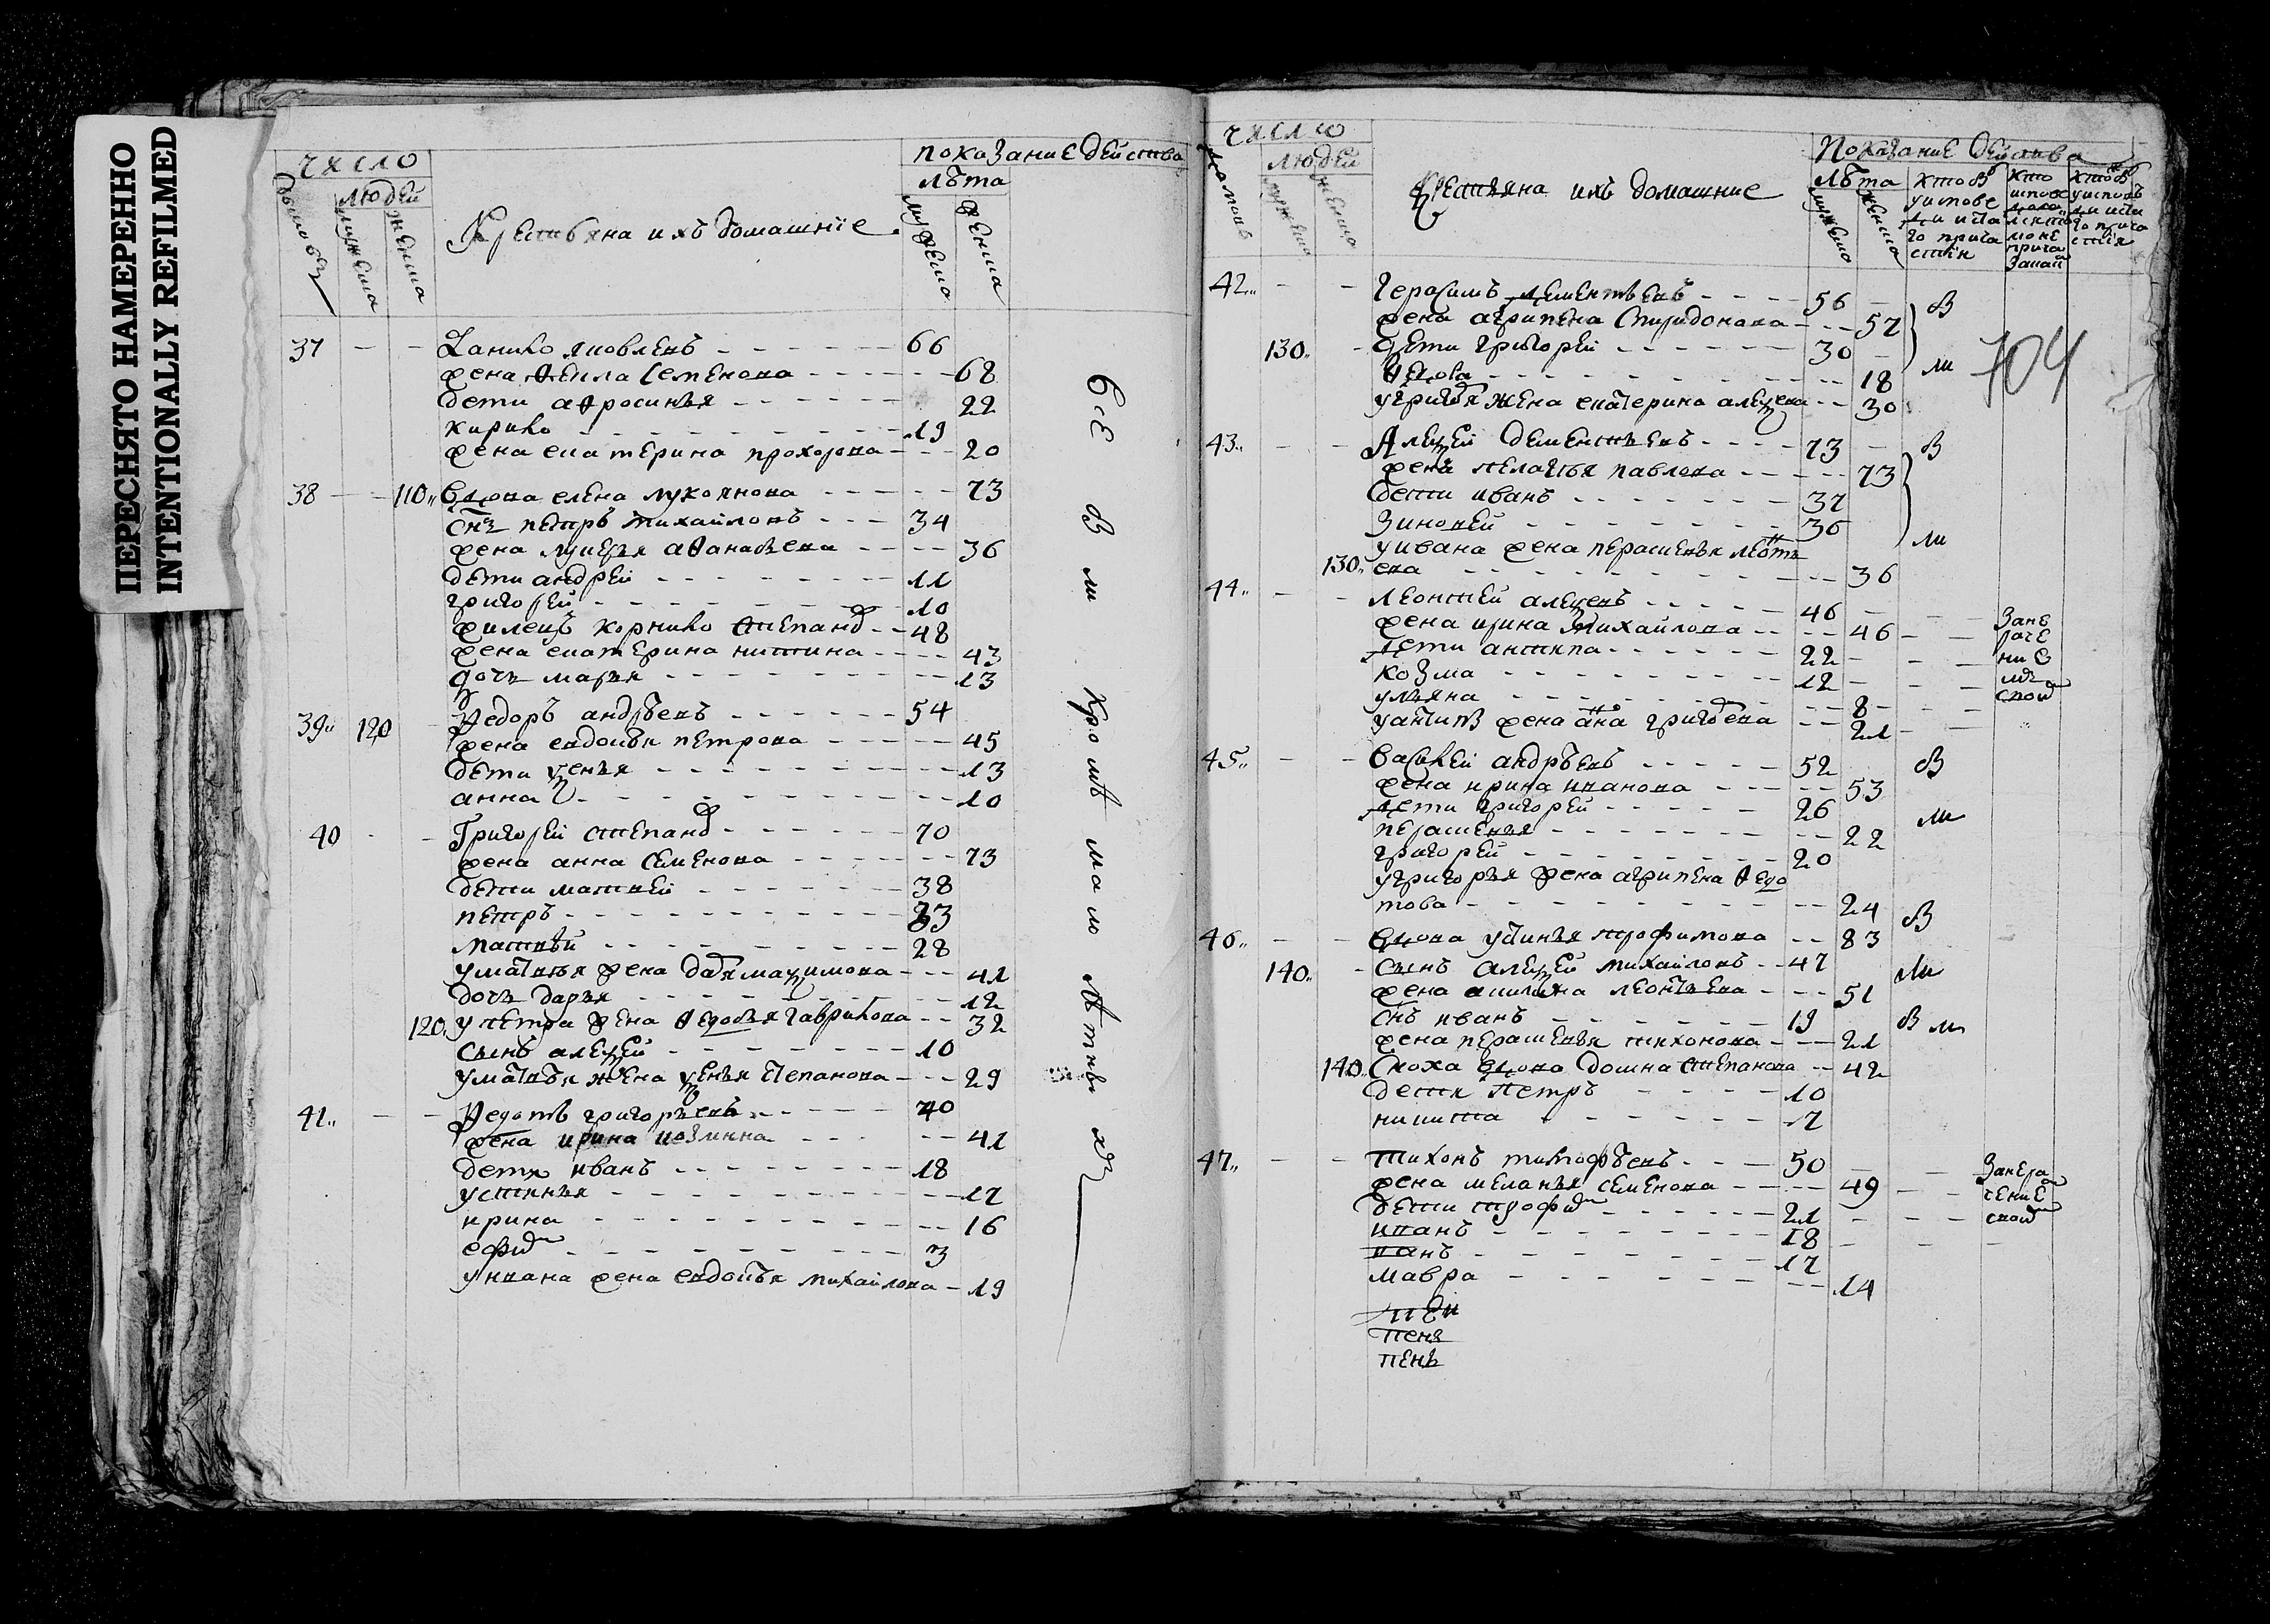 ПЕРЕСНЯТО НАМЕРЕННО
INTENTIONALLY REFILMED
число
людей
дворовъ
мужеска
женска
Крестьяна ихъ домашние
показание действа
лѣта
мужеска
женска
37 — — Данило яковлевъ — 66
жена Ѳекла Семенова — 68
дети аѲросинья — 22
кирило — 19
жена екатерина прохорова — 20
38 — 110„ Вдова елена лукоянова — 73
снъ петръ михайловъ — 34
жена лукерья аѲанасьева — 36
дети андрей — 11
григорей — 10
корнило степанов — 48
жена екатерина никитина — 43
дочь марья — 13
39„ 120 — Ѳедоръ андрѣевъ — 54
жена евдокѣя петрова — 45
дети ксенья — 13
анна — 10
40 — — Григорей степанов — 70
жена анна семенова — 73
дети матвей — 38
петръ — 33
матвѣй — 28
уматвѣя жена дарья максимова — 41
дочь дарья — 12
120„ упетра жена Ѳедосья гаврилова — 32
сынъ алексей — 10
уматвѣя жена ксенья степанова — 29
41„ — — Ѳедотъ григорьевъ — 40
жена ирина козмина — 41
дети иванъ — 18
устинья — 17
ирина — 16
ефим — 3
уивана жена евдокѣя михайлова — 19
всѣ в м кромѣ мало лѣтных
число
людей
мужеска
женска
Крестьяна ихъ домашние
Показание действа
лѣта
мужеска
женска
704
42„ — — Герасимъ дементьевъ — 56 — в
жена агрипена Спиридонова — 57
130„ — дети григорей — 30 —
Ѳекла — 18 м
угригорья жена екатерина алексеева — 30
43„ — — Алексей дементьевъ — 73 — в
жена пелагья павлова — 73
дети иванъ — 37
Зиновей — 36
уивана жена перасковья леонть м
130„ ева — 36
44„ — — Леонтей алексеевъ — 46 —
жена ирина михайлова — 46 —
дети антипа — 22 —
козма — 12 —
ульяна — 8 —
уантипы жена анна григорьева — 21 —
45„ — — Василей андрѣевъ — 52 в
жена ирина иванова — 53
дети григорей — 26
перасковья — 22 м
григорей — 20
угригорья жена агрипена Ѳедо
това — 24
46„ — — Вдова устинья трофимова — 83 в
140„ — сынъ алексей михайловъ — 47
жена акилина леонтьева — 51 м
снъ иванъ — 19
жена перасковья тихонова — 21 в м
140„ Сноха вдова домна степанова — 42
дети петръ — 10
никита — 7
47„ — — Тихонъ тимофѣевъ — 50 — Занера
жена меланья семенова — 49 — чение
дети трофим — 21 —
иванъ — 18 —
иванъ — 17
мавра — 14
пеня
пень